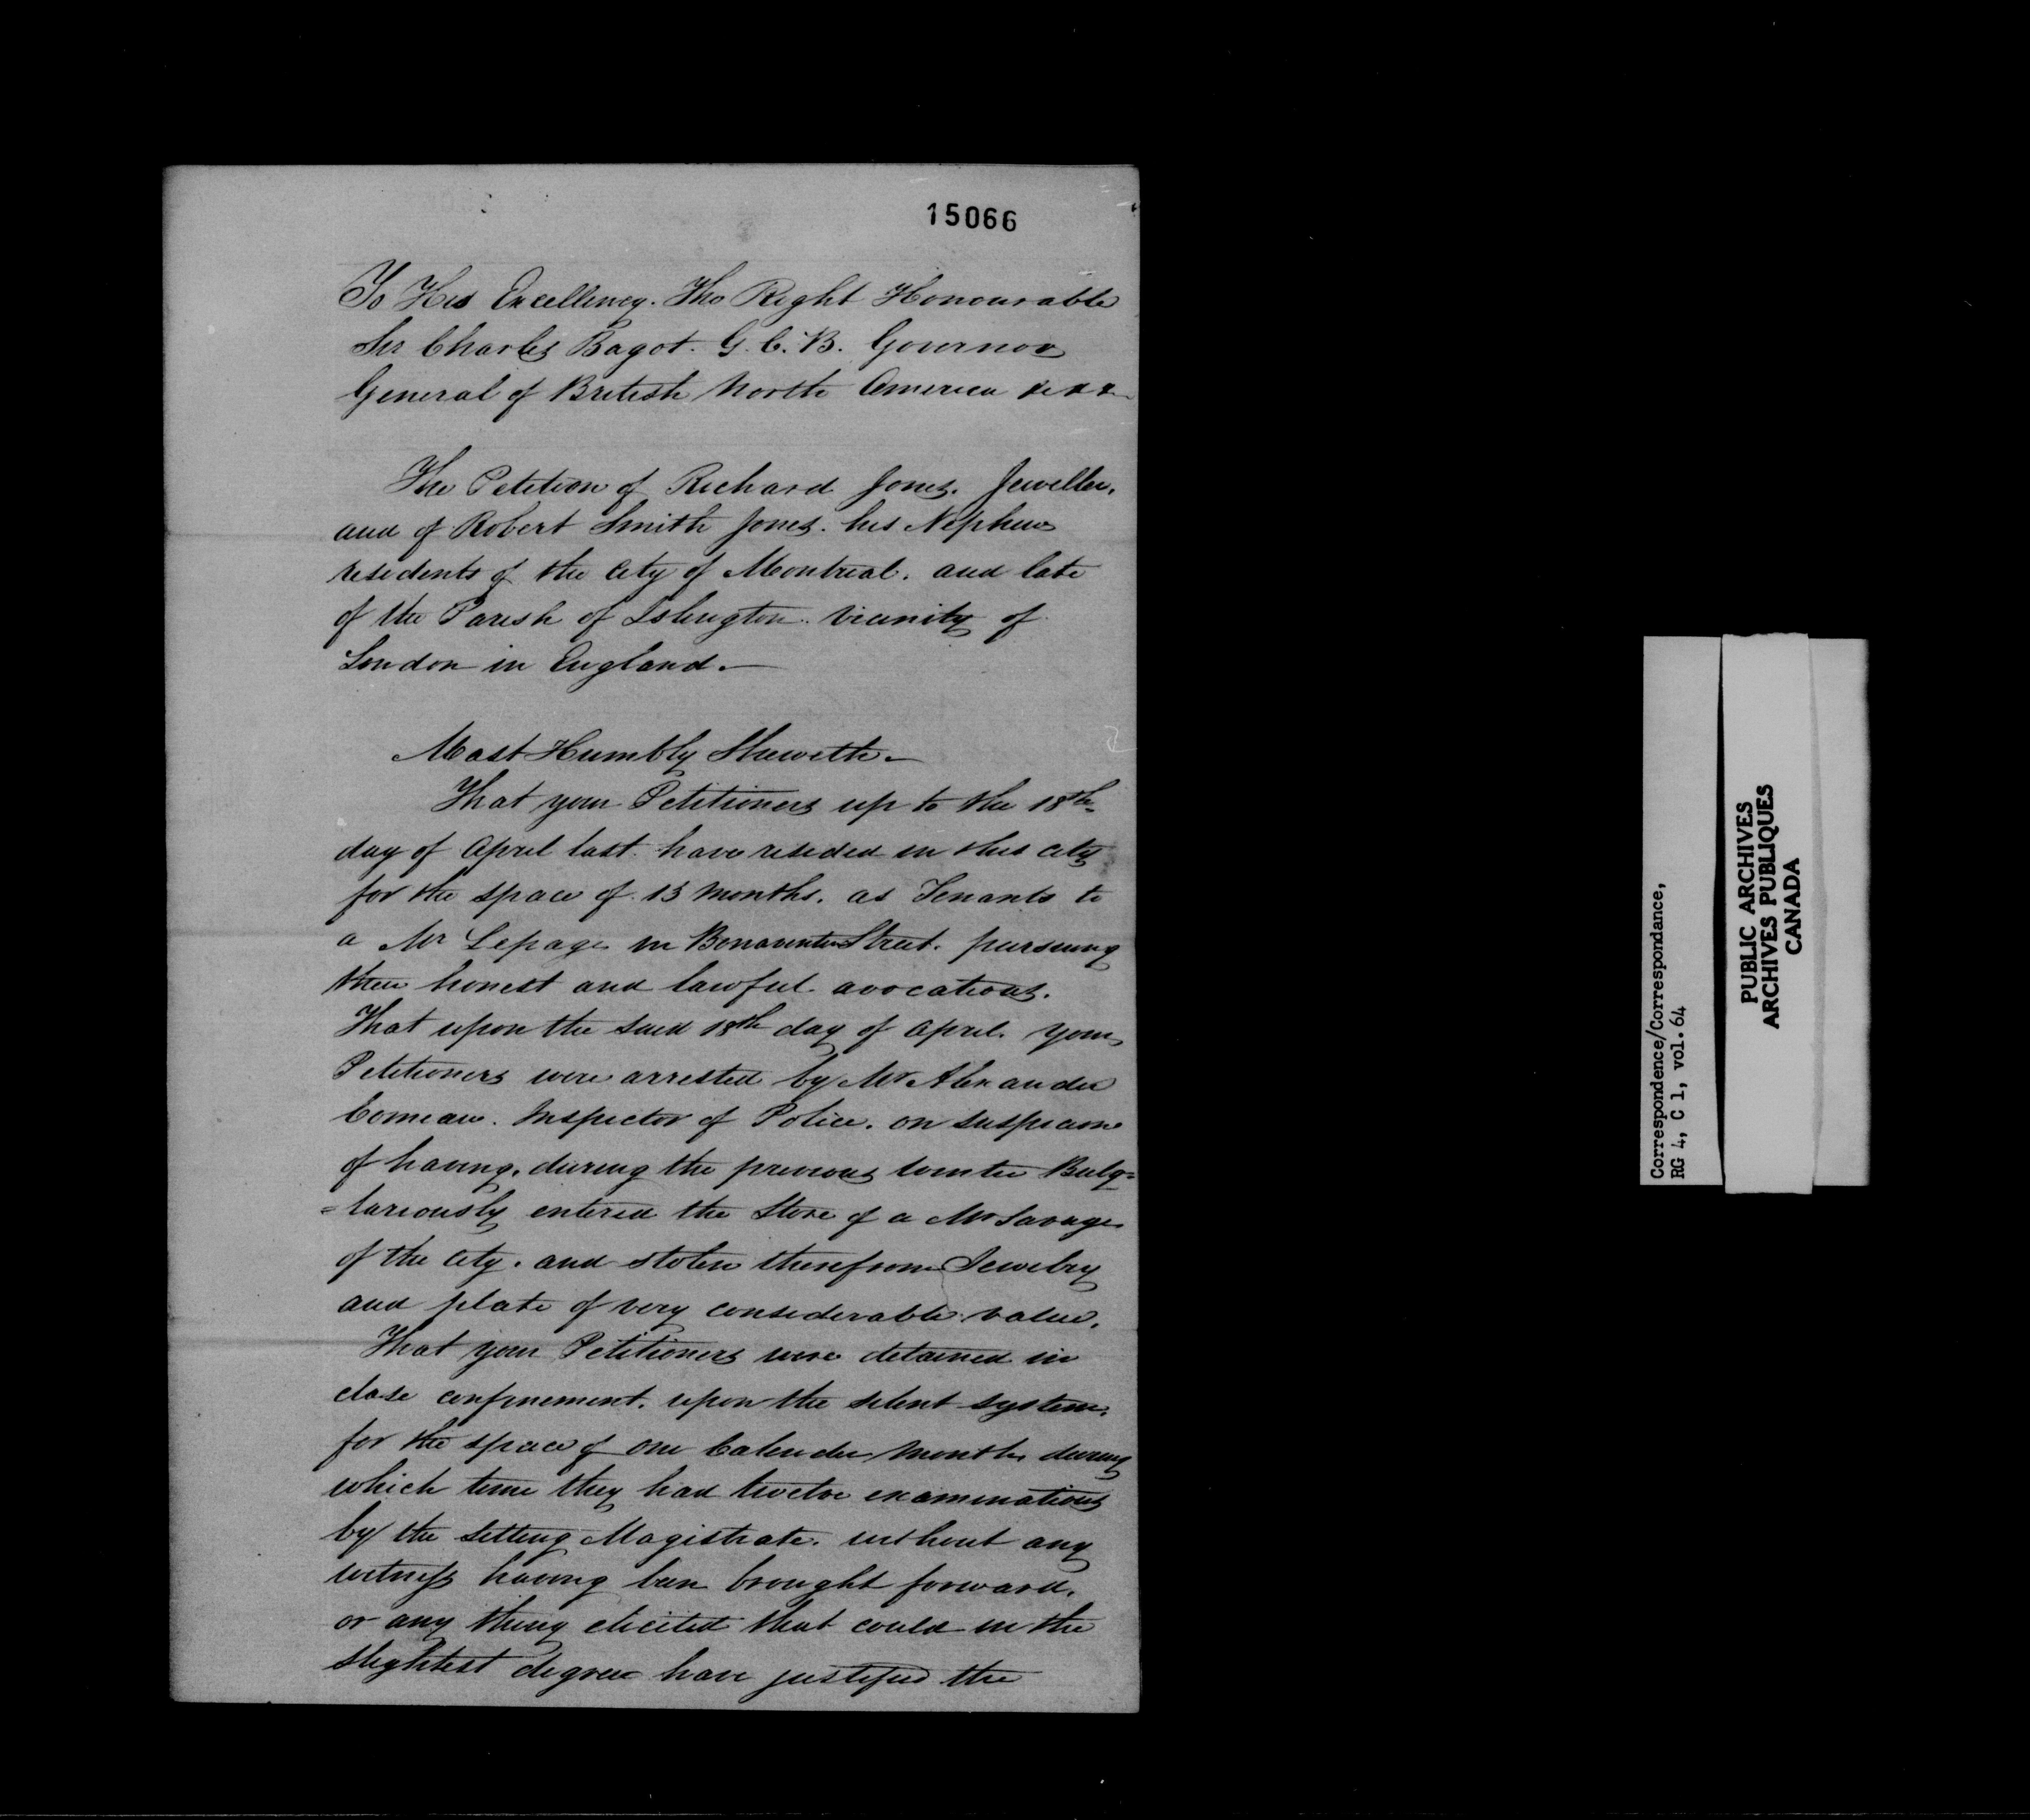 15066
To His Excellency. The Right Honourable
Sir Charles Bagot. G. C. B. Governor
General of British North America
The Petition of Richard Jones. Jeweller.
and of Robert Smith Jones. his Nephew
residents of the City of Montreal. and late
of the Parish of Islington. vicinity of
London in England.—
Most Humbly Sheweth—
That your Petitioners up to the 18th
day of April last. have resided in this city
for the space of 13 Months. as Tenants to
a Mr Lepage in Bonaventure Street. pursuing
their honest and lawful avocations.
That upon the said 18th day of April. your
Petitioners were arrested by Mr Alexander
Comeau. Inspector of Police. on suspicion
of having. during the previous winter Bulg=
=lariously entered the Store of a Mr Savage
of the City. and stolen therefrom Jewelry
and plate of very considerable value.
That your Petitioners were detained in
close confinement. upon the silent system.
for the space of one Calender Month, during
which time they had twelve examinations
by the Setting Magistrate. without any
witness having been brought forward.
or any thing elicited that could in the
slightest degree have justified the
Correspondence/Correspondance,
RG 4, C 1, vol.64
PUBLIC ARCHIVES
ARCHIVES PUBLIQUES
CANADA